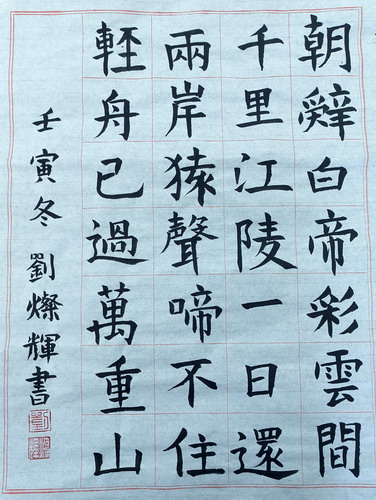 朝辤白帝彩雲間
千里江陵一日還
兩岸猿聲啼不住
輕舟已過萬重山
壬寅冬 劉燦輝書